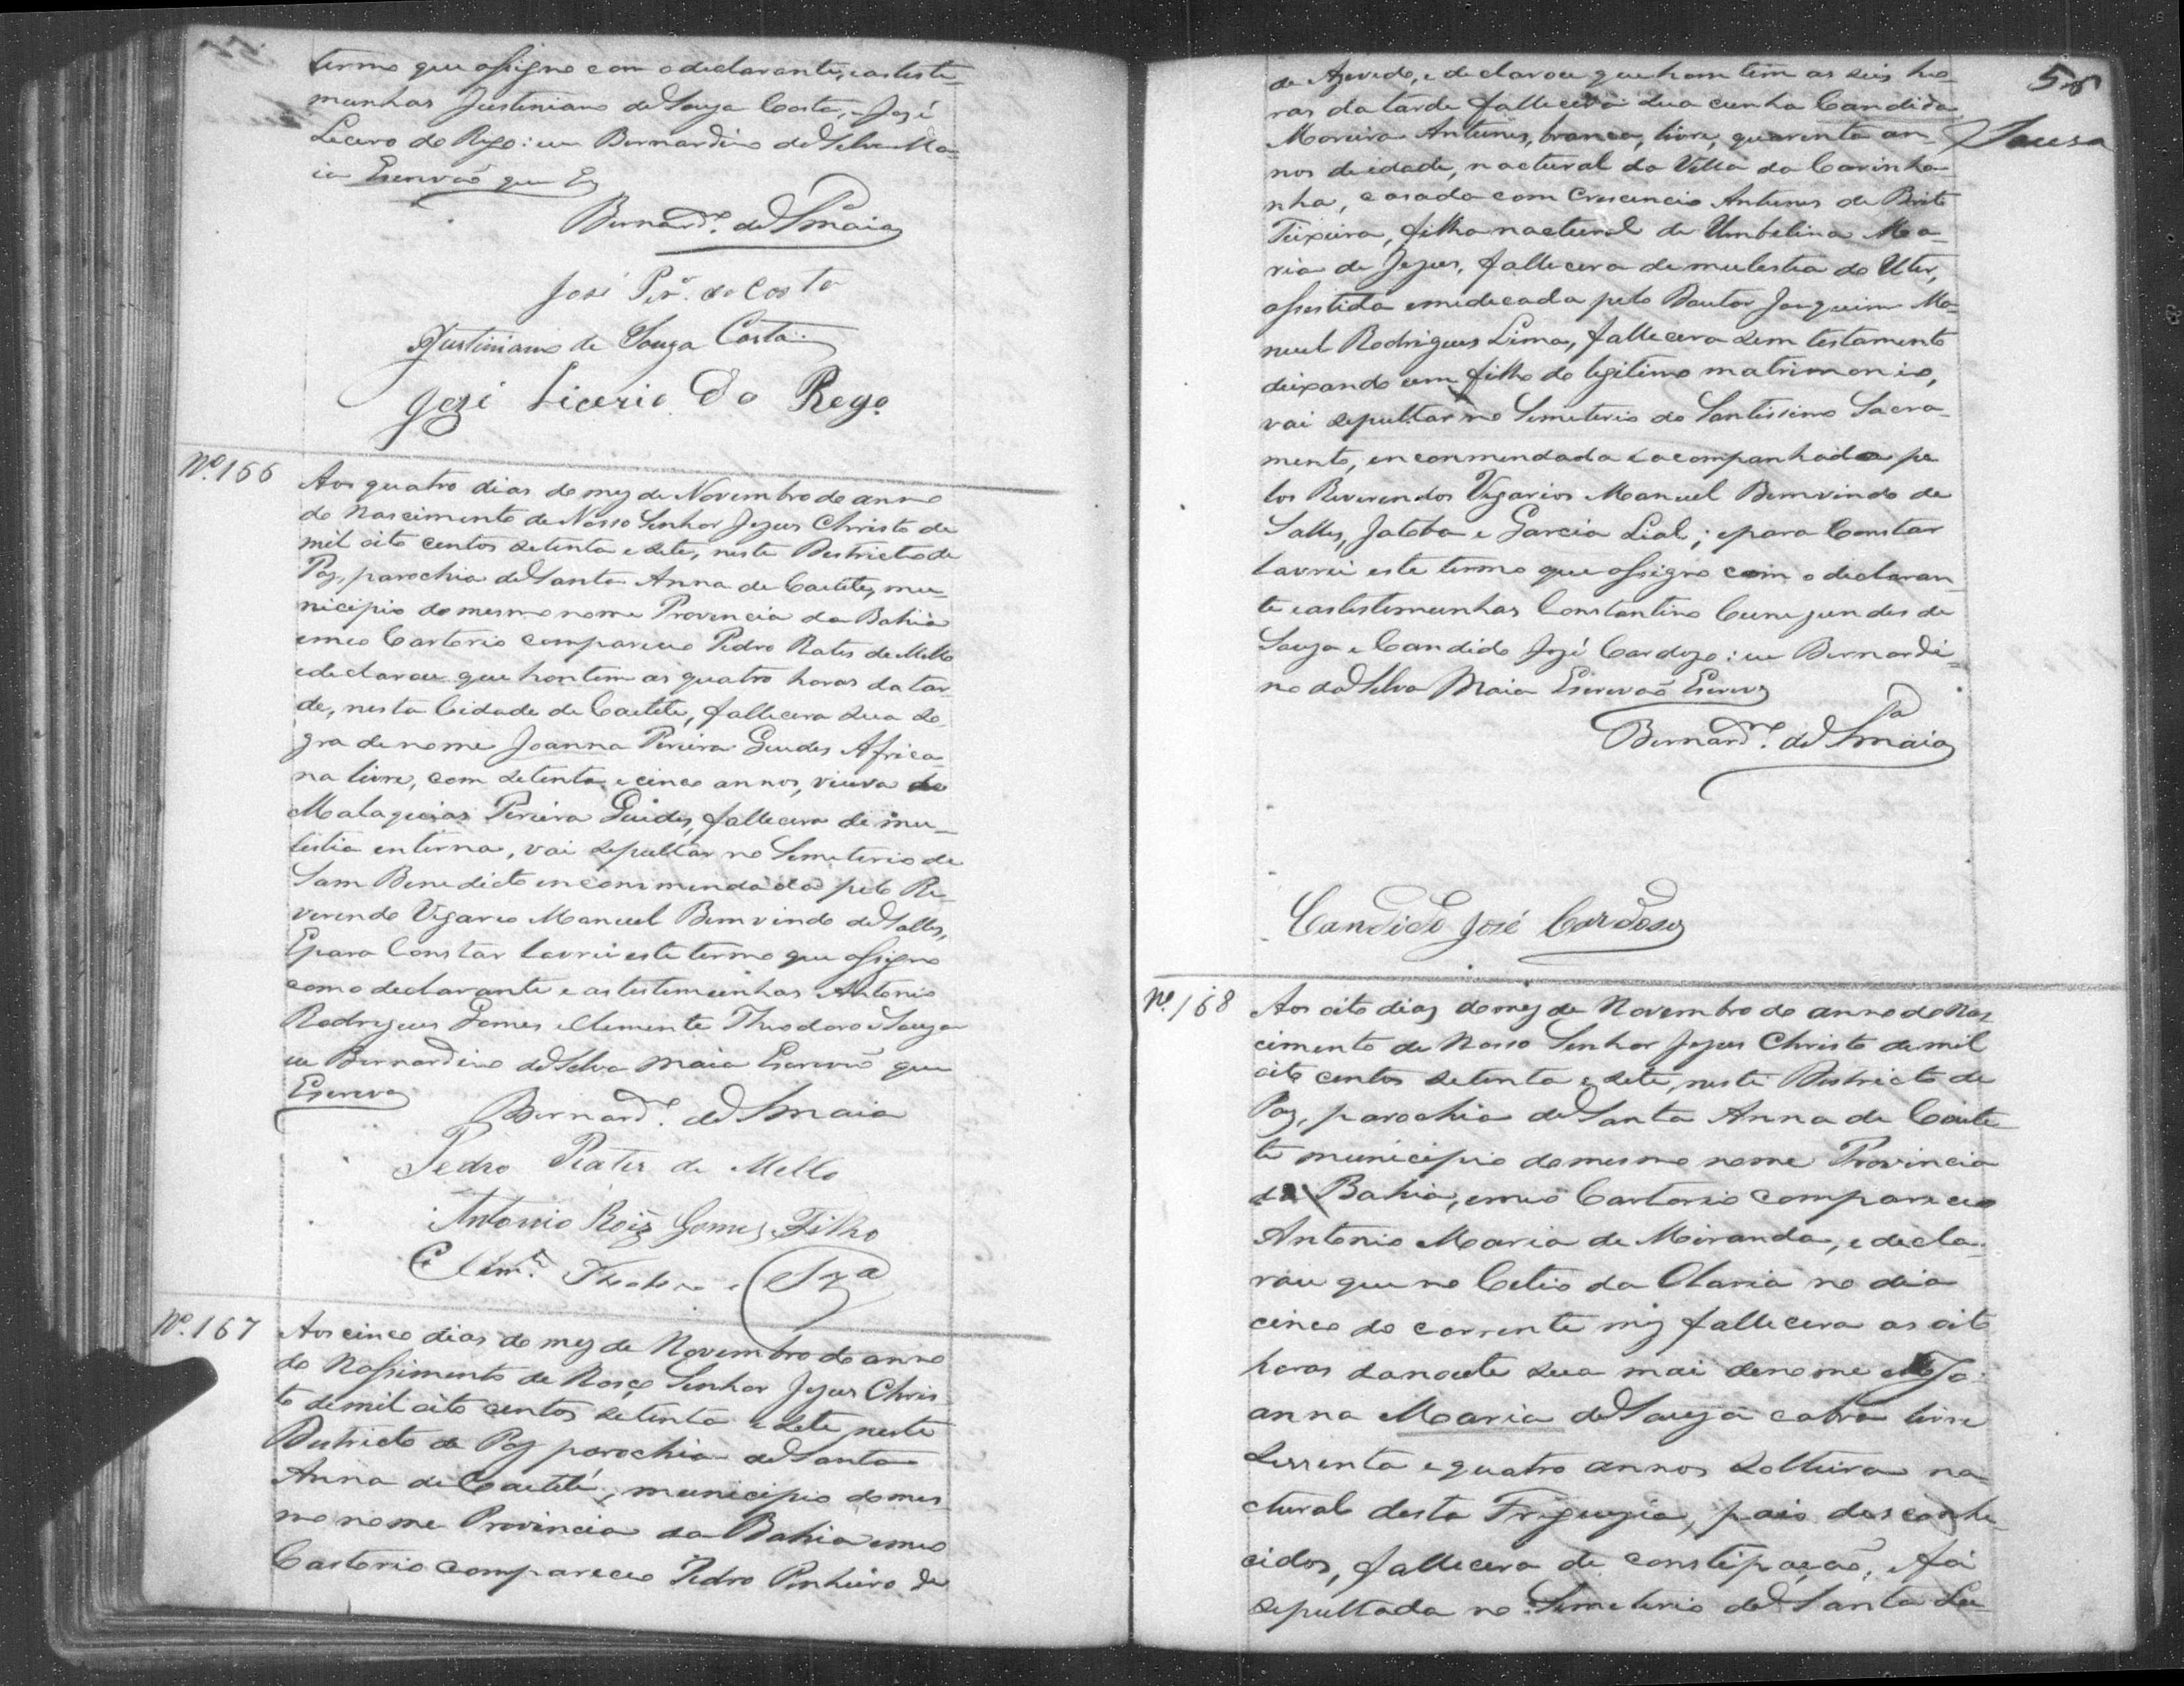 termo que assigno com o declarante, e as teste
munhas Justiniano de Souza Costa, e José
Licero do Rego: eu Bernardino da Silva Ma=
ia Escrivaõ que Es
Bernardo. da Sa Maia
José Per.a da Costa
Justiniano de Souza Costa
José Licerio Do Rego
Nº. 166
Aos quatro dias do mez de Novembro do anno
do Nascimento de Nosso Senhor Jezus Christo de
mil oito centos setenta e sete, neste Destricto de
Paz, parochia de Santa Anna de Caetete, mu=
nicipio do mesmo nome Provincia da Bahia
em meo Cartorio compareceo Pedro Rates de Mello
e declarou que hontem as quatro horas da tar
de, nesta Cidade de Caetete, fallecera sua so
gra de nome Joanna Pereira Guedes Africa
na livre, com setenta e cinco annos, viuva de
Malaquias Pereira Guides, fallecera de mu=
lestia enterna, vai sepultar no Semeterio de
Sam Benedicto encommendada pelo Re=
verendo Vigario Manuel Bemvindo de Salles,
E para Constar lavrei este termo que assigno
com o declarante e as testemunhas Antonio
Rodrigues Gomes e Clemente Theodoro e Souza
eu Bernardino da Silva Maia Escrivaõ que
Escreva
Bernardo. da Sa Maia
Pedro Rates de Mello
Antonio Roiz Gomes Filho
Clem.e Theodoro e Sza
Nº. 167
Aos cinco dias do mez de Novembro do anno
do Nassimento de Nosço Senhor Jezus Chris
to de mil oito centos setenta e sete, neste
Destricto de Paz parochia de Santa
Anna de Caetité, municipio do mes
mo nome Provincia da Bahia em meo
Cartorio compareceo Pedro Pinheiro de
58
Sousa
de Azevedo, e declarou que hontem as seis ho
ras da tarde fallecera sua cunha Candida
Moreira Antunes, branca, livre, quarenta an=
nos de idade, nactural da Villa da Carinha
nha, casada com Crescencio Antunes de Brito
Teixeira, filha nactural de Umbelina Ma=
ria de Jezus, fallecera de mulestia do Uter,
assestida e medecada pelo Doutor Joaquim Ma=
nuel Rodrigues Lima, fallecera sem testamento
deixando um filho do legitimo matrimonio,
vai sepultar no Semeterio do Santissimo Sacra=
mento, enconmendada e acompanhada pe
los Reverendos Vigarios Manuel Bemvindo de
Salles, Jatoba e Garcia Lial; e para Constar
lavrei este termo que assigno com o declaran
te e as testemunhas Constantino Cunegundes de
Souza e Candido José Cardozo: eu Bernardi=
no da Silva Maia Escrivaõ Escrevi
Bernardo. da Sa Maia
Candido José Cardoso
Nº. 168
Aos oito dias do mez de Novembro do anno do Nas
cimento de Nosso Senhor Jezus Christo de mil
oito centos setenta e sete, neste Destricto de
Paz, parochia de Santa Anna de Caite
te municipio do mesmo nome Provincia
da Bahia, em meo Cartorio compareceo
Antonio Maria de Miranda, e decla
rou que no Citio da Olaria no dia
cinco do corrente mez fallecera as oito
horas da noute sua mai de nome Jo
anna Maria de Souza cabra livre
sessenta e quatro annos solteira na
ctural desta Freguezia, pais desconhe
cidos, fallecera de constipaçaõ, foi
sepultada no Semeterio de Santa Lu